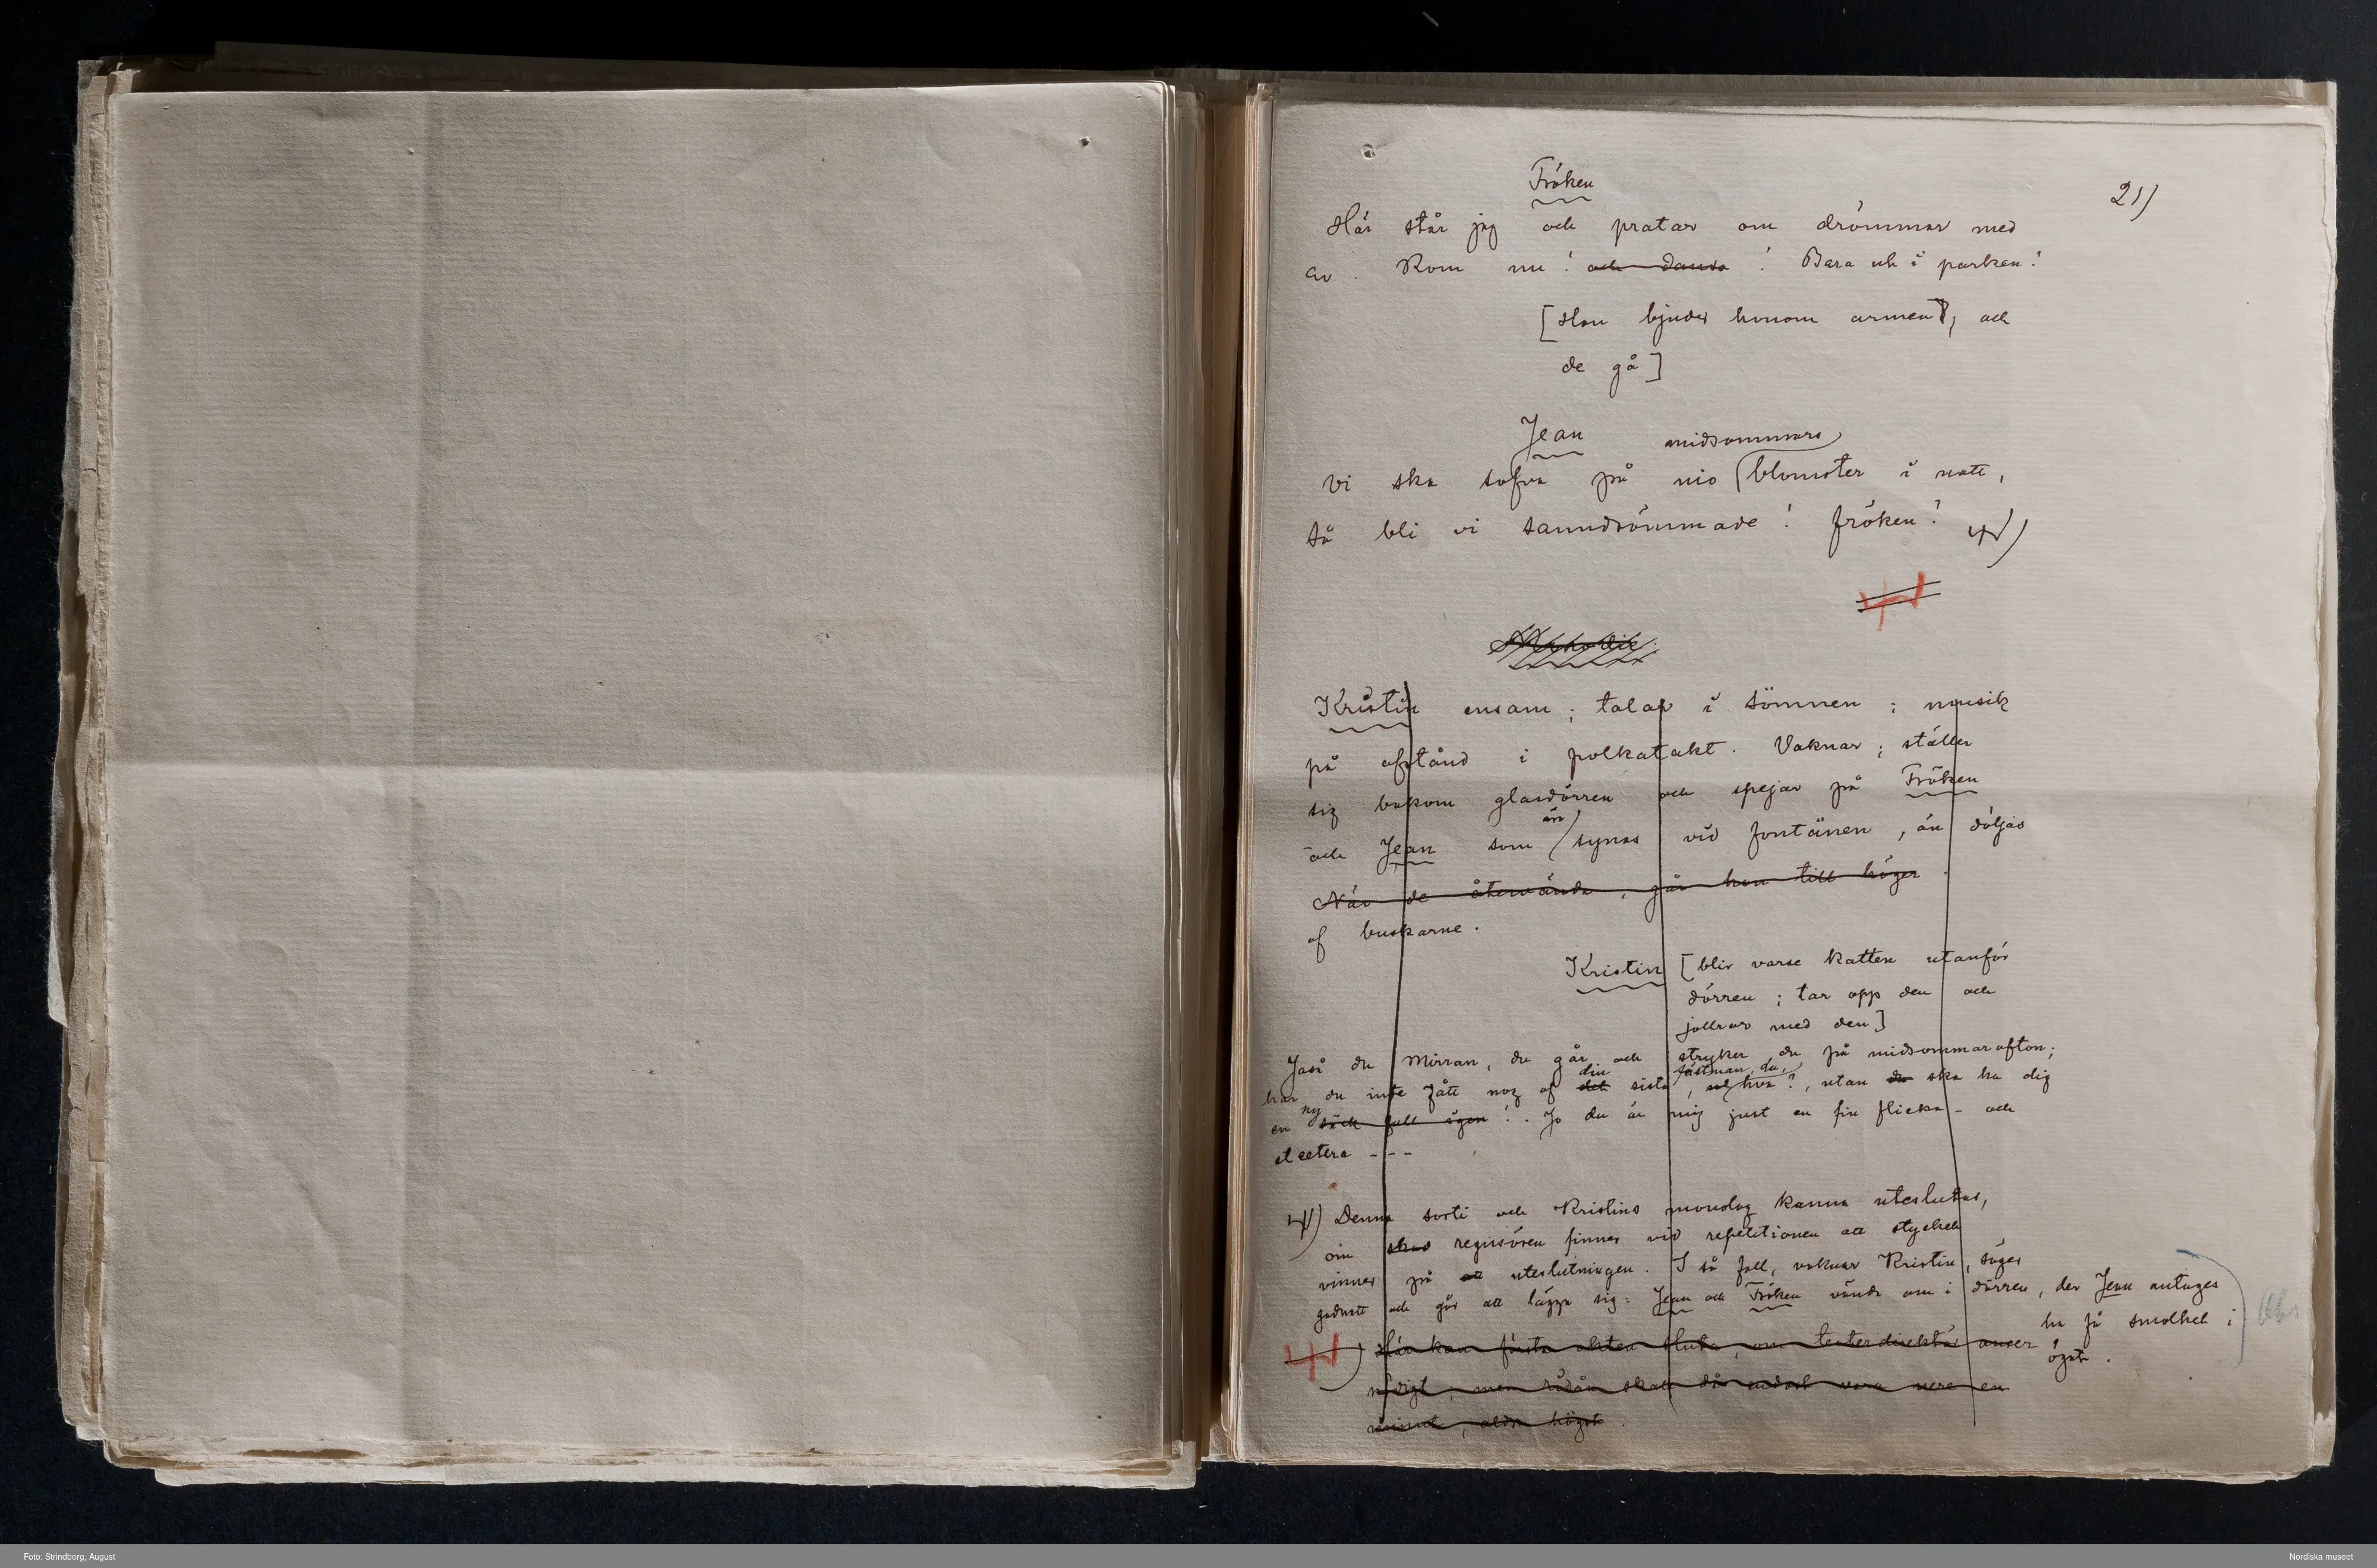 21)
Fröken
Här står jag och pratar om drömmar med
er. Kom nu! och dansa! Bara ut i parken!
[Hon bjuder honom armen, och
de gå]
Jean
midsommars
Vi ska sofva på nio blomster i natt,
så bli vi sanndrömmade! fröken!
Kristin ensam; talar i sömnen; musik
på afstånd i polkatakt. Vaknar; ställer
sig bakom glasdörren och spejar på Fröken
än
och Jean som synas vid fontänen, än döljas
När de återvända, går hon till höger.
af buskarne.
Kristin [blir varse katten utanför
dörren; tar opp den och
jollrar med den]
Jaså du Mirran, du går och stryker du på midsommarafton;
din fästman, du,
har du inte fått nog af det sista, hva?, utan du ska ha dig
ny
en säck full igen!. Jo du är mig just en fin flicka - och
et cetera ---
Denna sorti och Kristins monolog kunna uteslutas,
om regissören finner vid repetitionen att stycket
vinner på att uteslutningen. I så fall, vaknar Kristin, säger
godnatt och går att lägga sig: Jean och Fröken vända om i dörren, der Jean antages
ha få smolket i
ögat.
Här kan första akten sluta, om teaterdirektör anser
nödigt, men ridån skall då endast vara nere en
minut, aldra högst.
Foto: Strindberg, August
Nordiska museet